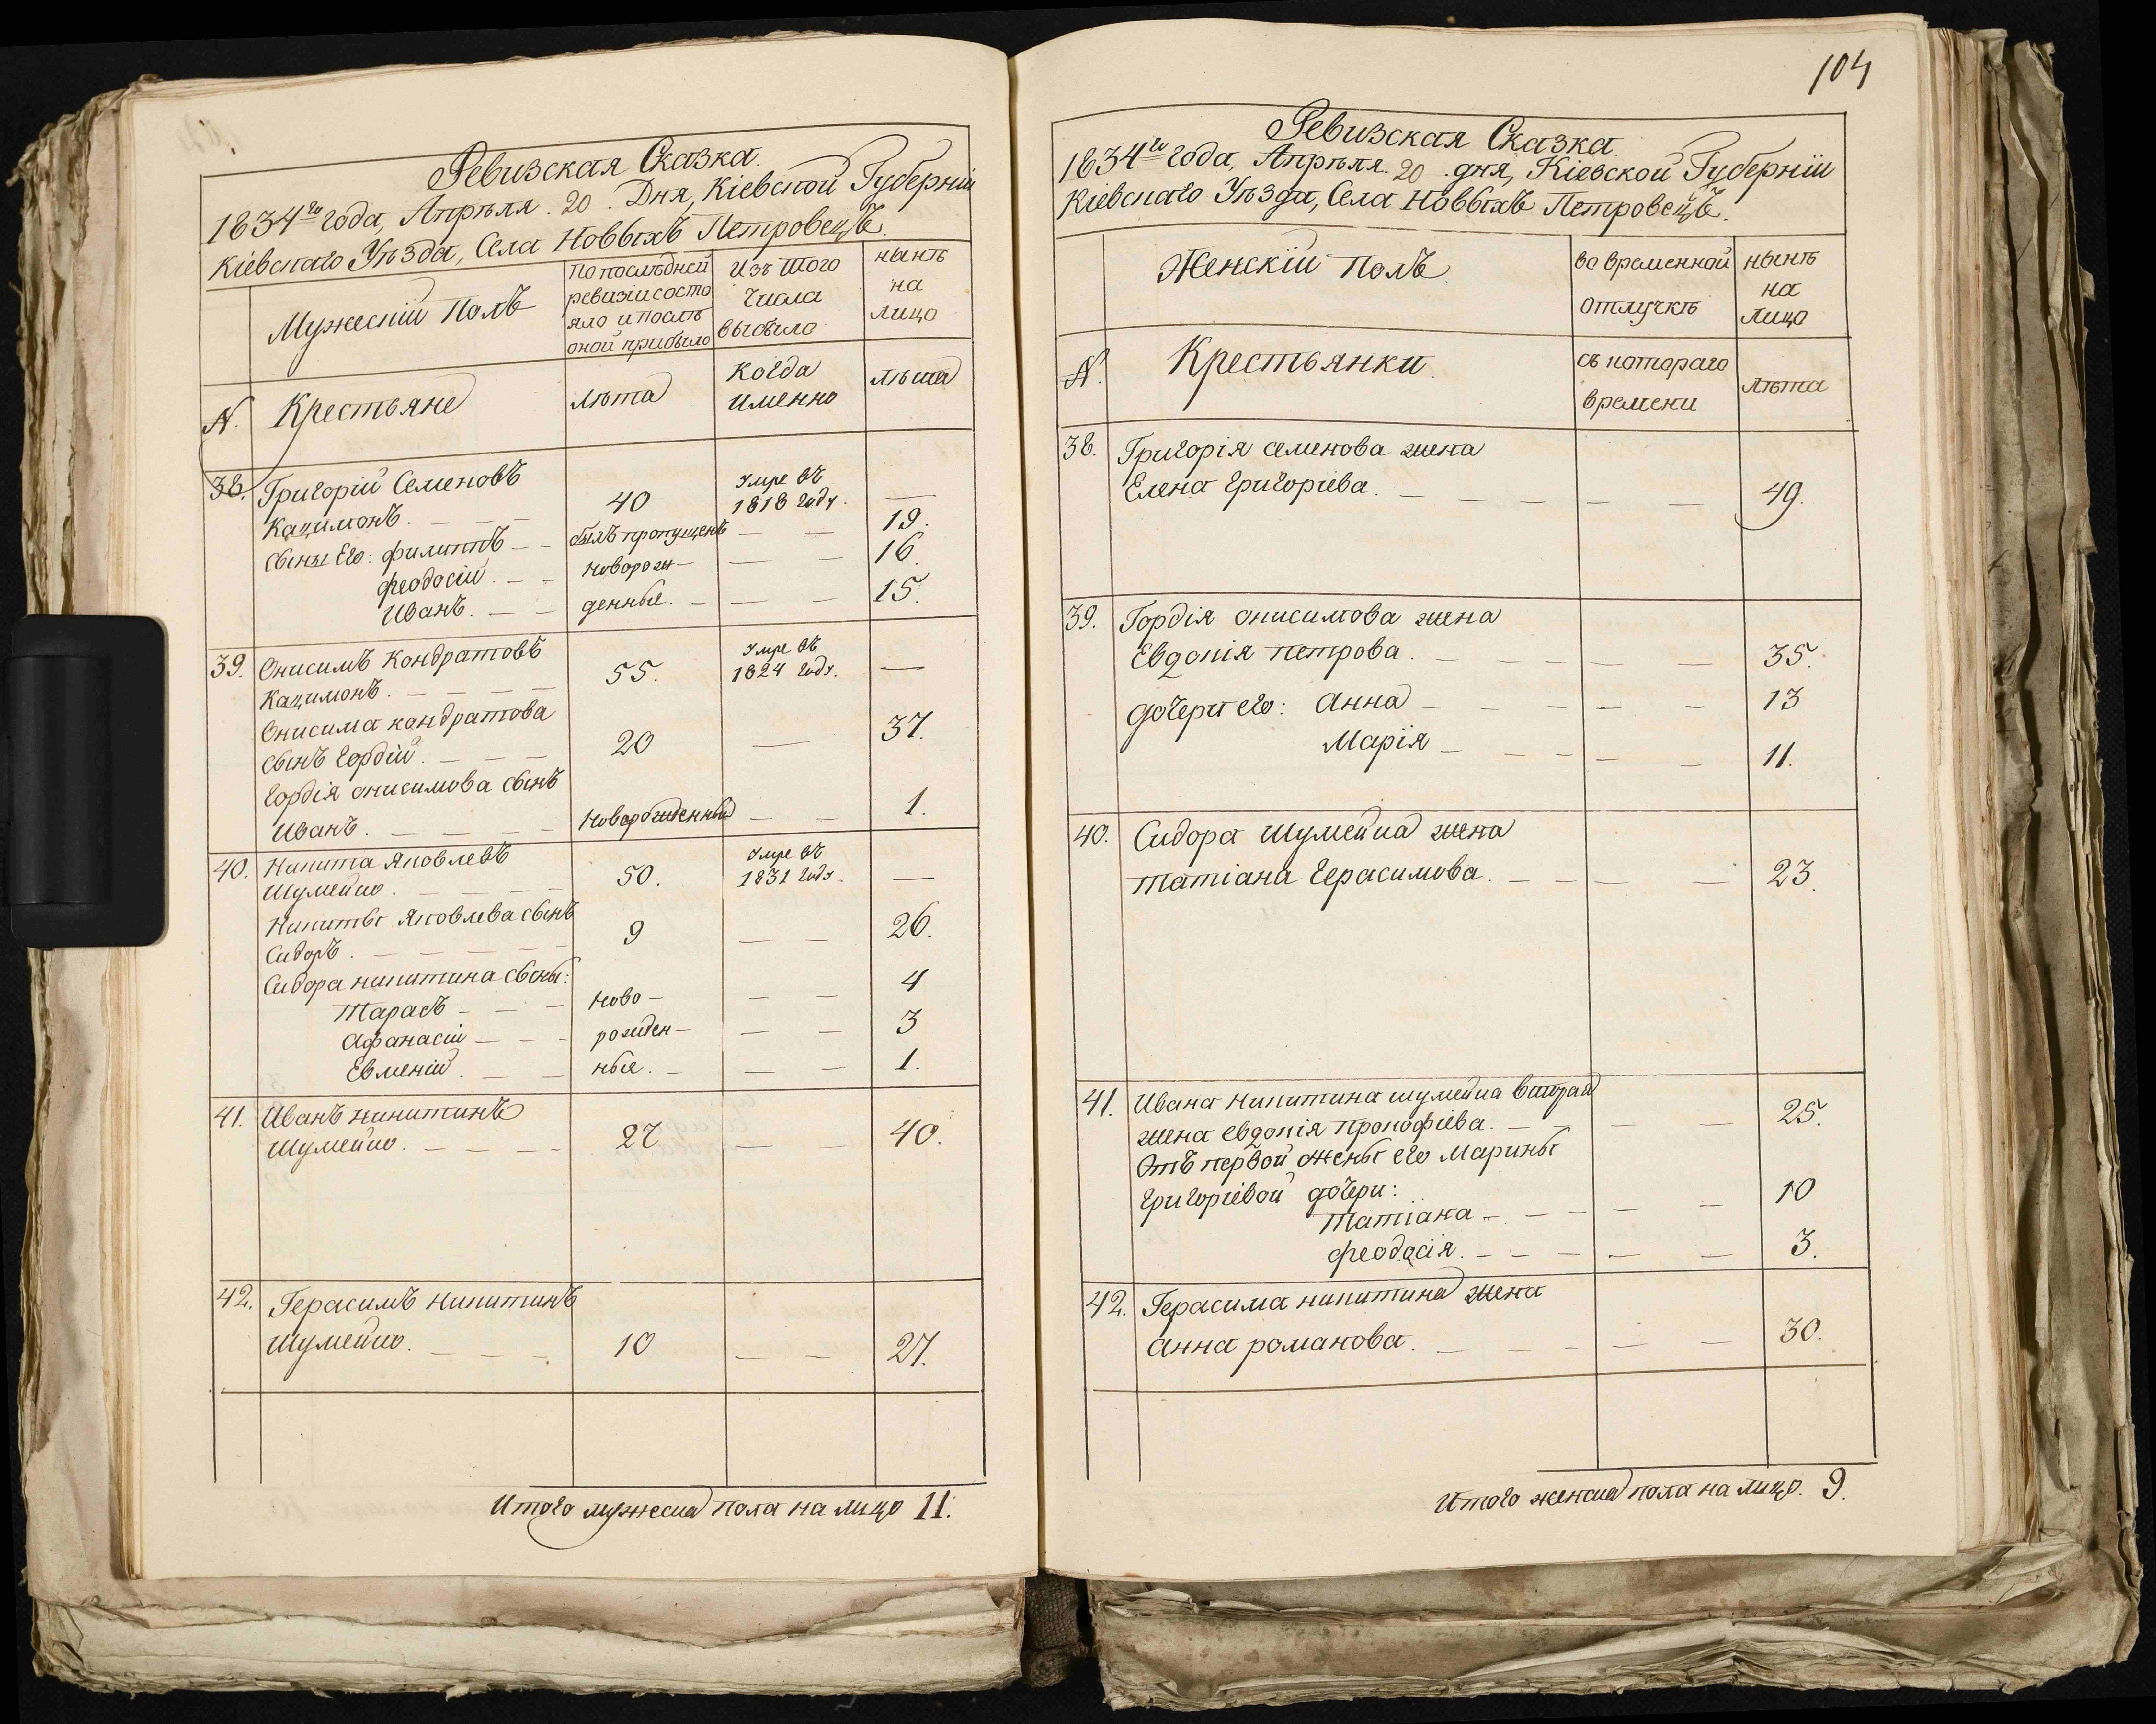 104
Ревизская Сказка.
1834го года, Апрѣля. 20. Дня, Кіевской Губерніи
Кіевскаго Уѣзда, Села Новыхъ Петровецъ.
Мужескій Полъ
По послѣдней
ревизіи состо
яло и послѣ
оной прибыло
Изъ того
числа
выбыло
нынѣ
на
лицо
N.
Крестьяне
лѣта
Когда
именно
лѣта
38.
Григорій Семеновъ
Кацимонъ. — — —
40
Умре въ
1818 году.
—
Сыны Его: Филиппъ — —
былъ пропущенъ — —
19.
Феодосій. — —
новорож— — —
16.
Иванъ. — —
денные. — — —
15.
39.
Онисимъ Кондратовъ
Кацимонъ. — — — —
55.
Умре въ
1824 году.
—
Онисима кондратова
сынъ Гордій. — — —
20
—
37.
Гордія онисимова сынъ
Иванъ. — — — —
Новорожденный — —
1.
40.
Никита Яковлевъ
Шумейко. — — — —
50.
Умре въ
1831 году.
—
Никиты Яковлева сынъ
Сидоръ. — — — —
9
— —
26.
Сидора никитина сыны:
Тарасъ — — —
ново—
— —
4
Афанасій — — —
рожден—
— —
3
Евменій. — —
ные. —
— —
1.
41.
Иванъ никитинъ
Шумейко. — — — —
27
— —
40.
42.
Герасимъ Никитинъ
Шумейко. — — —
10
— —
27.
Итого мужеска пола на лицо 11.
Ревизская Сказка.
1834го года, Апрѣля. 20. дня, Кіевской Губерніи
Кіевскаго Уѣзда, Села Новыхъ Петровецъ.
Женскій Полъ.
во временной
отлучкѣ
нынѣ
на
лицо
N.
Крестьянки.
съ котораго
времени
лѣта
38.
Григорія семенова жена
Елена григоріева. — — — — — —
49.
39.
Гордія онисимова жена
Евдокія петрова. — — — — —
35.
дочери его: Анна — — — — — —
13
Марія — — — — —
11.
40.
Сидора шумейка жена
татіана герасимова. — — — —
23.
41.
Ивана никитина шумейка вторая
жена евдокія прокофіева. — — —
25.
Отъ первой жены его Марины
григоріевой дочери:
Татіана — — — — —
10
феодосія. — — — — —
3.
42.
Герасима никитина жена
анна романова. — — — — —
30.
Итого женска пола на лицо. 9.